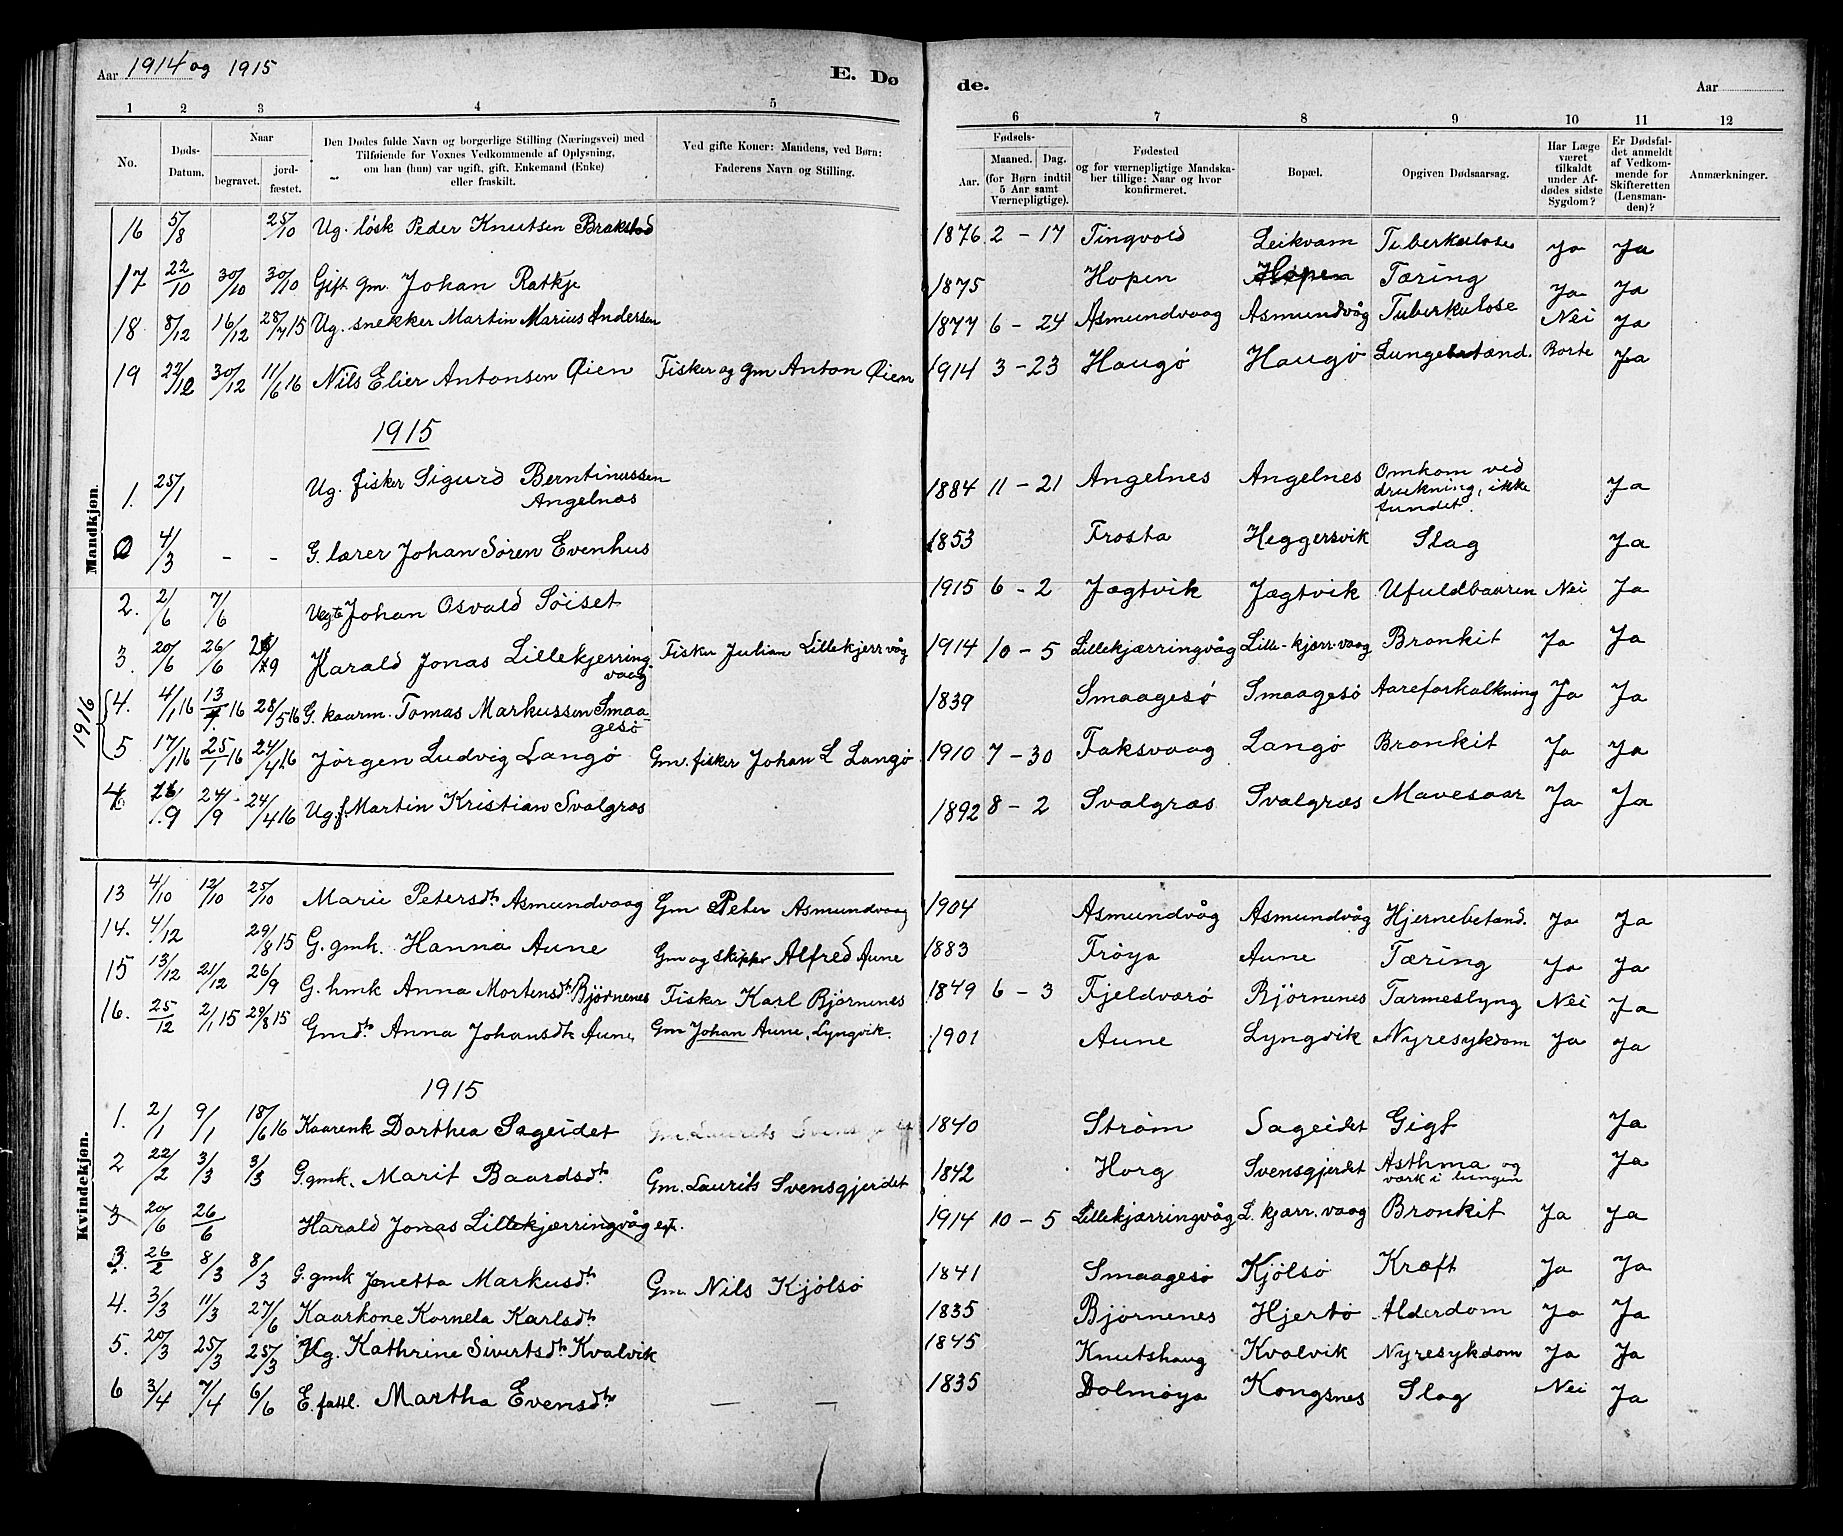 Aar 1914 og 1915 E. Dø de. Aar
1 2 3 4 5 6 7 8 9 10 11 12
No. Døds-Datum. Naar begravet. jordfæstet. Den Dødes fulde Navn og borgerlige Stilling (Næringsvei) med Tilføiende for Voxnes Vedkommende af Oplysning, om han (hun) var ugift, gift, Enkemand (Enke) eller fraskilt. Ved gifte Koner: Mandens, ved Børn: Faderens Navn og Stilling. Fødsels- Aar. Maaned. Dag. (for Børn indtil 5 Aar samt Værnepligtige). Fødested og for værnepligtige Mandskaber tillige: Naar og hvor konfirmeret. Bopæl. Opgiven Dødsaarsag. Har Læge været tilkaldt under Afdødes sidste Sygdom? Er Dødsfaldet anmeldt af Vedkommende for Skifteretten (Lensmanden)? Anmærkninger.
Mandkjøn.
16 5/8 25/10 Ug. løsk Peder Knutsen Brakstad 1876 2 - 17 Tingvold Leikvam Tuberkulose Ja Ja
17 22/10 30/10 30/10 Gift gm. Johan Ratkje 1875 Hopen Hopen Tæring Ja Ja
18 8/12 16/12 28/7 15 Ug. snekker Martin Marius Andersen 1877 6 - 24 Asmundvaag Asmundvåg Tuberkulose Nei Ja
19 22/12 30/12 11/6 16 Nils Elier Antonsen Øien Fisker og gm Anton Øien 1914 3 - 23 Haugø Haugø Lungebetænd. Borte Ja
1915
1. 25/1 Ug. fisker Sigurd Berntinussen Angelnæs 1884 11 - 21 Angelnes Angelnes Omkom ved drukning, ikke fundet. Ja
4/3 - - G. lærer Johan Søren Evenhus 1853 Frosta Heggersvik Slag Ja
2. 2/6 7/6 Johan Osvald Søiset 1915 6 - 2 Jægtvik Jægtvik Ufuldbaaren Nei Ja
3. 20/6 26/6 Harald Jonas Lillekjerringvaag Fisker Julian Lillekjerrvåg 1914 10 - 5 Lillekjærringvåg Lille-kjærr.vaag Bronkit Ja Ja
1916
4. 4/1 16 13/1 16 28/5 16 G. kaarm. Tomas Markussen Smaagesø 1839 Smaagesø Smaagesø Aareforkalkning Ja Ja
5 17/1 16 25/1 16 24/4 16 Jørgen Ludvig Langø Gm. fisker Johan L Langø 1910 7 - 30 Faksvaag Langø Bronkit Ja Ja
4. 24/9 24/4 16 Ug. f. Martin Kristian Svalgræs 1892 8 - 2 Svalgræs Svalgræs Mavesaar Ja Ja
Kvindekjøn.
13 4/10 12/10 25/10 Marie Petersdtr Asmundvaag Gm Peter Asmundvaag 1904 Asmundvåg Asmundvåg Hjernebetænd. Ja Ja
14. 4/12 29/8 15 G. gmk. Hanna Aune Gm og skipper Alfred Aune 1883 Frøya Aune Tæring Ja Ja
15 13/12 21/12 26/9 G. hmk Anna Mortensdtr Bjørnenes Fisker Karl Bjørnenes 1849 6 - 3 Fjeldværø Bjørnenes Tarmeslyng Nei Ja
16. 25/12 2/1 15 29/8 15 Gmdtr. Anna Johansdtr Aune, Gm Johan Aune, Lyngvik. 1901 Aune Lyngvik Nyresykdom Ja Ja
1915
1. 2/1 9/1 18/6 16 Kaarenk Dorthea Sageidet 1840 Strøm Sageidet Gigt Ja
2 22/2 3/3 3/3 G. gmk. Marit Baardsdtr Gm. Laurits Svensgjerdet 1842 Horg Svensgjerdet Asthma og værk i lungen Ja
3 20/6 26/6 Harald Jonas Lillekjærringvåg 1914 10 - 5 Lillekjærringvåg L. kjærr. vaag Bronkit Ja Ja
3. 26/2 8/3 8/3 G. gmk Jonetta Markusdtr Gm. Nils Kjølsø 1841 Smaagesø Kjølsø Kræft Ja Ja
4. 3/3 11/3 27/6 Kaarkone Kornela Karlsdtr 1835 Bjørnenes Hjertø Alderdom Ja Ja
5. 20/3 25/3 25/3 Ug. Kathrine Sivertsdtr Kvalvik 1845 Knutshaug Kvalvik Nyresykdom Ja Ja
6 3/4 7/4 6/6 E. fattl. Martha Evensdtr — — 1835 Dolmøya Kongsnes Slag Nei Ja